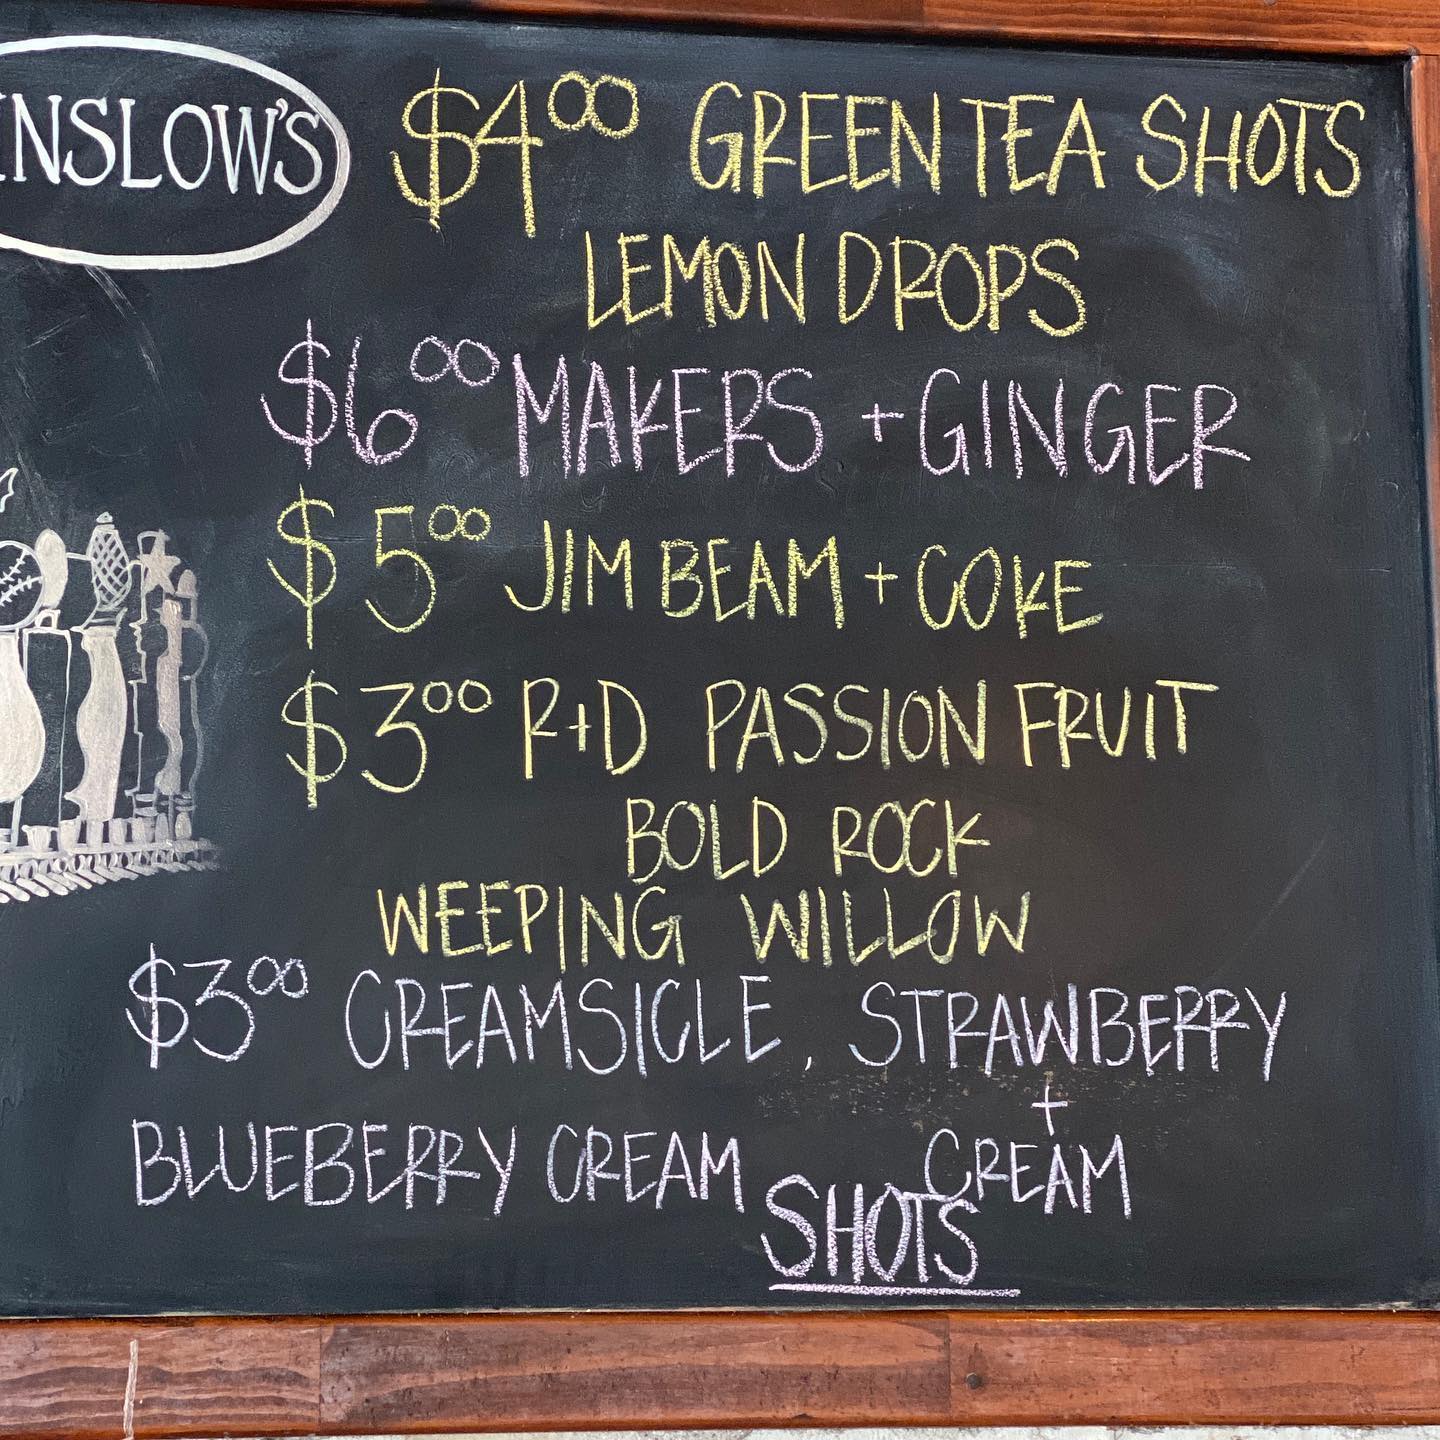 INSLOW'S
$4⁰⁰ GREEN TEA SHOTS
LEMON DROPS
$6⁰⁰ MAKERS + GINGER
$5⁰⁰ JIM BEAM + COKE
$3⁰⁰ R+D PASSION FRUIT
BOLD ROCK
WEEPING WILLOW
$3⁰⁰ CREAMSICLE, STRAWBERRY
+
BLUEBERRY CREAM CREAM
SHOTS